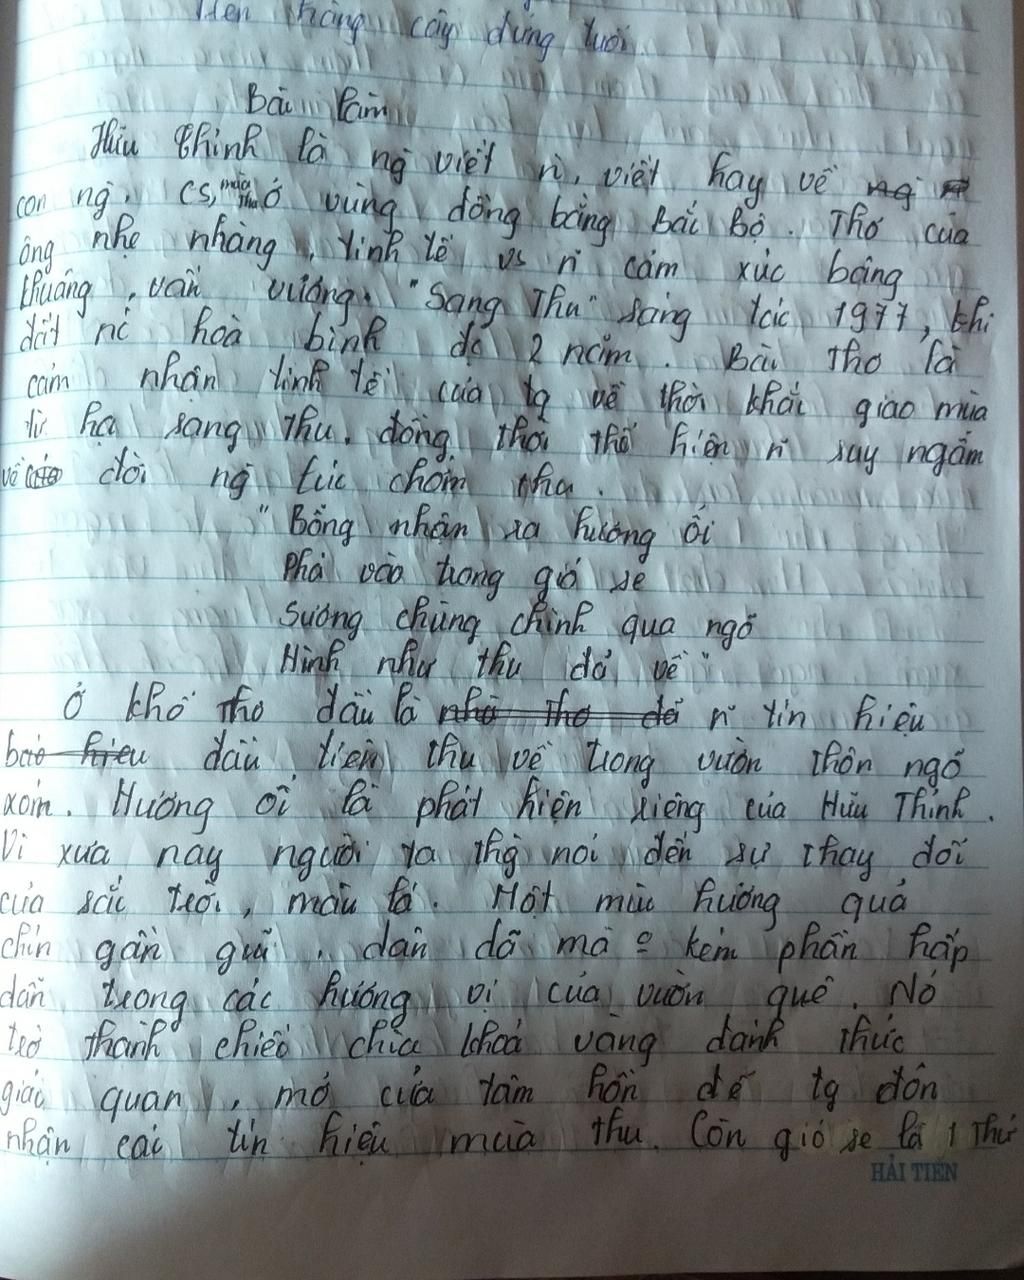 Trên hàng cây đứng tuổi
Bài làm
Hữu Thỉnh là ng viết n̄, viết hay về
con ng, cs, mùa thu ở vùng đồng bằng Bắc Bộ. Thơ của
ông nhẹ nhàng, tinh tế vs n̄ cảm xúc bâng
khuâng, vấn vương. "Sang Thu" sáng tác 1977, khi
đất nc hoà bình đc 2 năm. Bài thơ là
cảm nhận tinh tế của tg về thời khắc giao mùa
từ hạ sang thu, đồng thời thể hiện n̄ suy ngẫm
về đời ng lúc chớm thu.
"Bỗng nhận ra hương ổi
Phả vào trong gió se
Sương chùng chình qua ngõ
Hình như thu đã về"
Ở khổ thơ đầu là n̄ tín hiệu
đầu tiên thu về trong vườn thôn ngõ
xóm. Hương ổi là phát hiện riêng của Hữu Thỉnh.
Vì xưa nay người ta thg nói đến sự thay đổi
của sắc trời, màu lá. Một mùi hương quả
chín gần gũi, dân dã mà o kém phần hấp
dẫn trong các hương vị của vườn quê. Nó
trở thành chiếc chìa khoá vàng đánh thức
giác quan, mở cửa tâm hồn để tg đón
nhận các tín hiệu mùa thu. Còn gió se là 1 thứ
HẢI TIẾN